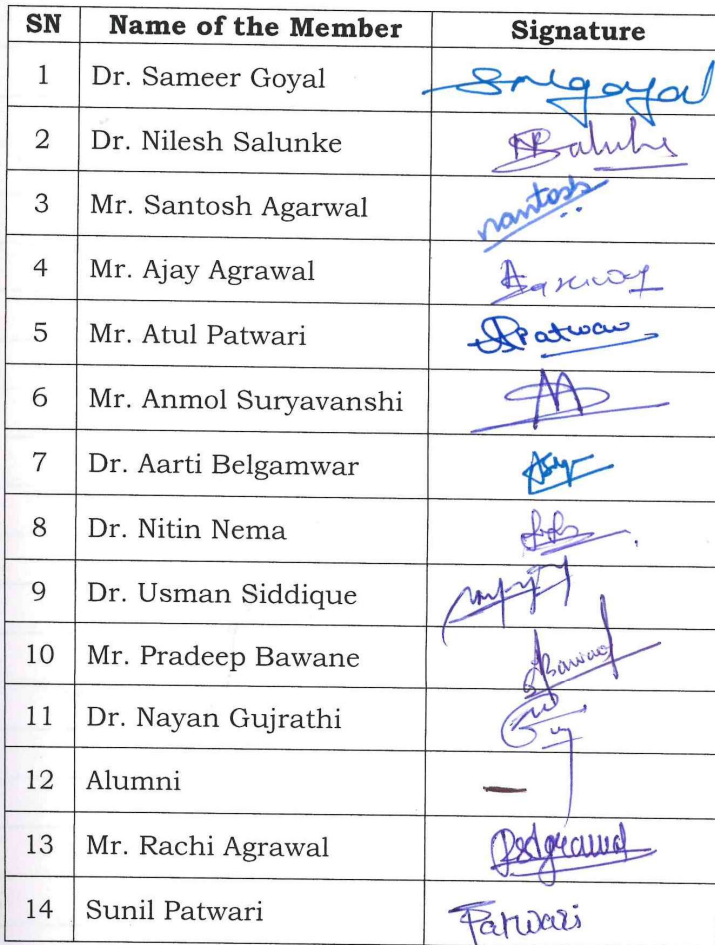 SN Name of the Member Signature
1 Dr. Sameer Goyal
2 Dr. Nilesh Salunke
3 Mr. Santosh Agarwal santosh
4 Mr. Ajay Agrawal
5 Mr. Atul Patwari
6 Mr. Anmol Suryavanshi
7 Dr. Aarti Belgamwar
8 Dr. Nitin Nema
9 Dr. Usman Siddique
10 Mr. Pradeep Bawane
11 Dr. Nayan Gujrathi
12 Alumni —
13 Mr. Rachi Agrawal
14 Sunil Patwari Patwari